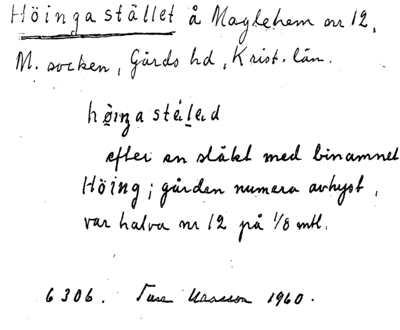 Höingastället å Maglehem nr 12,
M. socken, Gärds hd, Krist. län.
høiŋa stɛ́led
efter en släkt med binamnet
Höing; gården numera avhyst,
var halva nr 12 på 1/8 mtl.
6306. 1960.